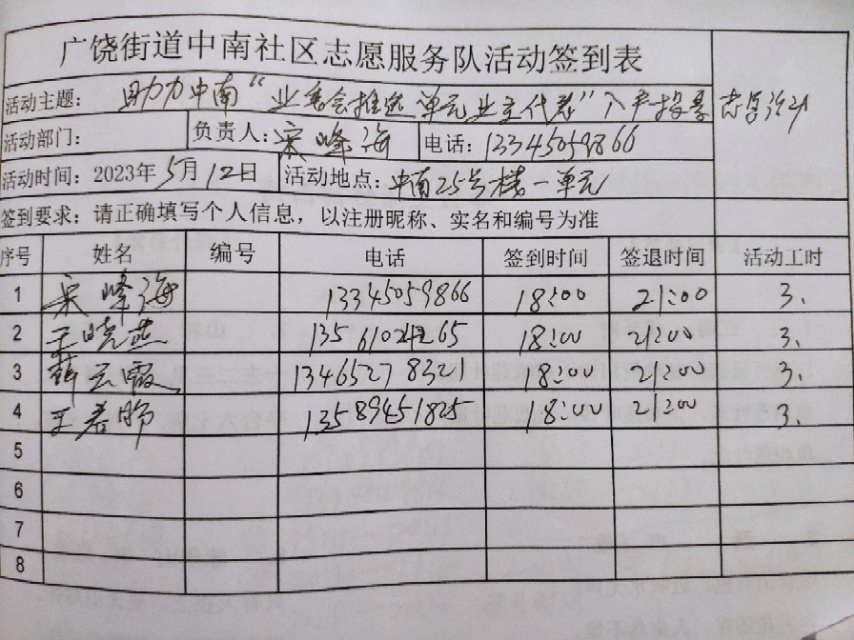 广饶街道中南社区志愿服务队活动签到表
活动主题: 助力中南“业委会推选单元业主代表”入户投票 志愿活动
活动部门: 负责人: 宋峰海 电话: 13345059866
活动时间: 2023年5月12日 活动地点: 中南25号楼一单元
签到要求: 请正确填写个人信息, 以注册昵称、实名和编号为准
序号 姓名 编号 电话 签到时间 签退时间 活动工时
1 宋峰海 13345059866 18:00 21:00 3.
2 王晓燕 135610 265 18:00 21:00 3.
3 韩云霞 13465278321 18:00 21:00 3.
4 王春 13589451825 18:00 21:00 3.
5
6
7
8